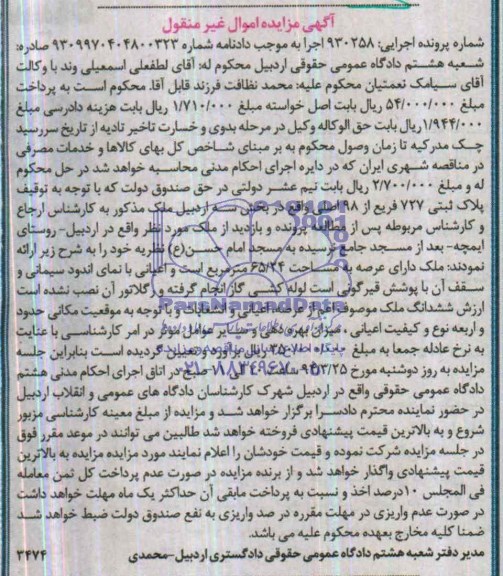 آگهی مزایده اموال غیر منقول
شماره پرونده اجرایی: ۹۳۰۲۵۸ اجرا به موجب دادنامه شماره ۹۳۰۹۹۷۰۴۰۴۸۰۰۳۲۳ صادره:
شعبه هشتم دادگاه عمومی حقوقی اردبیل محکوم له: آقای لطفعلی اسمعیلی وند با وکالت
آقای سیامک نعمتیان محکوم علیه: محمد نظافت فرزند قابل آقا. محکوم است به پرداخت
مبلغ ۵۴/۰۰۰/۰۰۰ ریال بابت اصل خواسته مبلغ ۱/۷۱۰/۰۰۰ ریال بابت هزینه دادرسی مبلغ
۱/۹۴۴/۰۰۰ ریال بابت حق الوکاله وکیل در مرحله بدوی و خسارت تاخیر تادیه از تاریخ سررسید
چک مدرکیه تا زمان وصول محکوم به بر مبنای شاخص کل بهای کالاها و خدمات مصرفی
در مناقصه شهری ایران که در دایره اجرای احکام مدنی محاسبه خواهد شد در حل محکوم
له و مبلغ ۲/۷۰۰/۰۰۰ ریال بابت نیم عشر دولتی در حق صندوق دولت که با توجه به توقیف
پلاک ثبتی ۷۲۷ فریع از ۹۸ اصلی واقع در بخش سه اردبیل ملک مذکور به کارشناس ارجاع
و کارشناس مربوطه پس از مطالعه پرونده و بازدید از ملک مورد نظر واقع در اردبیل- روستای
ایمچه- بعد از مسجد جامع نرسیده به مسجد امام حسن(ع) نظریه خود را به شرح زیر ارائه
نمودند: ملک دارای عرصه به مساحت ۶۵/۲۴ مترمربع است و اعیانی با نمای اندود سیمانی و
سقف آن با پوشش قیرگونی است لوله کشی گاز انجام گرفته و رگلاتور آن نصب نشده است
ارزش ششدانگ ملک موصوف اعم از عرصه، اعیانی و انشعابات و با توجه به موقعیت مکانی حدود
و اربعه نوع و کیفیت اعیانی، میزان بهره دهی و سایر عوامل موثر در امر کارشناسی با عنایت
به نرخ عادله جمعا به مبلغ ریال برآورد و تعیین گردیده است بنابراین جلسه
مزایده به روز دوشنبه مورخ ۹۵/۳/۲۵ صبح در اتاق اجرای احکام مدنی هشتم
دادگاه عمومی حقوقی واقع در اردبیل شهرک کارشناسان دادگاه های عمومی و انقلاب اردبیل
در حضور نماینده محترم دادسرا برگزار خواهد شد و مزایده از مبلغ معینه کارشناسی مزبور
شروع و به بالاترین قیمت پیشنهادی فروخته خواهد شد طالبین می توانند در موعد مقرر فوق
در جلسه مزایده شرکت نموده و قیمت خودشان را اعلام نمایند مورد مزایده به بالاترین
قیمت پیشنهادی واگذار خواهد شد و از برنده مزایده در صورت عدم پرداخت کل ثمن معامله
فی المجلس ۱۰ درصد اخذ و نسبت به پرداخت مابقی آن حداکثر یک ماه مهلت خواهد داشت
در صورت عدم واریزی در مهلت مقرره در صد واریزی به نفع صندوق دولت ضبط خواهد شد
ضمنا کلیه مخارج بعهده محکوم علیه می باشد.
مدیر دفتر شعبه هشتم دادگاه عمومی حقوقی دادگستری اردبیل-محمدی ۳۴۷۴